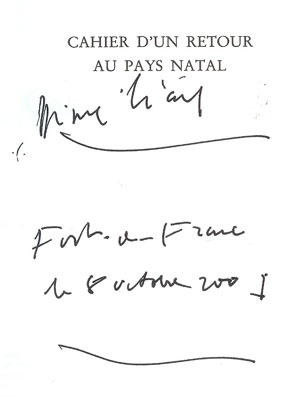 CAHIER D'UN RETOUR
AU PAYS NATAL
Aimé Césaire
Fort-de-France
le 8 octobre 2001